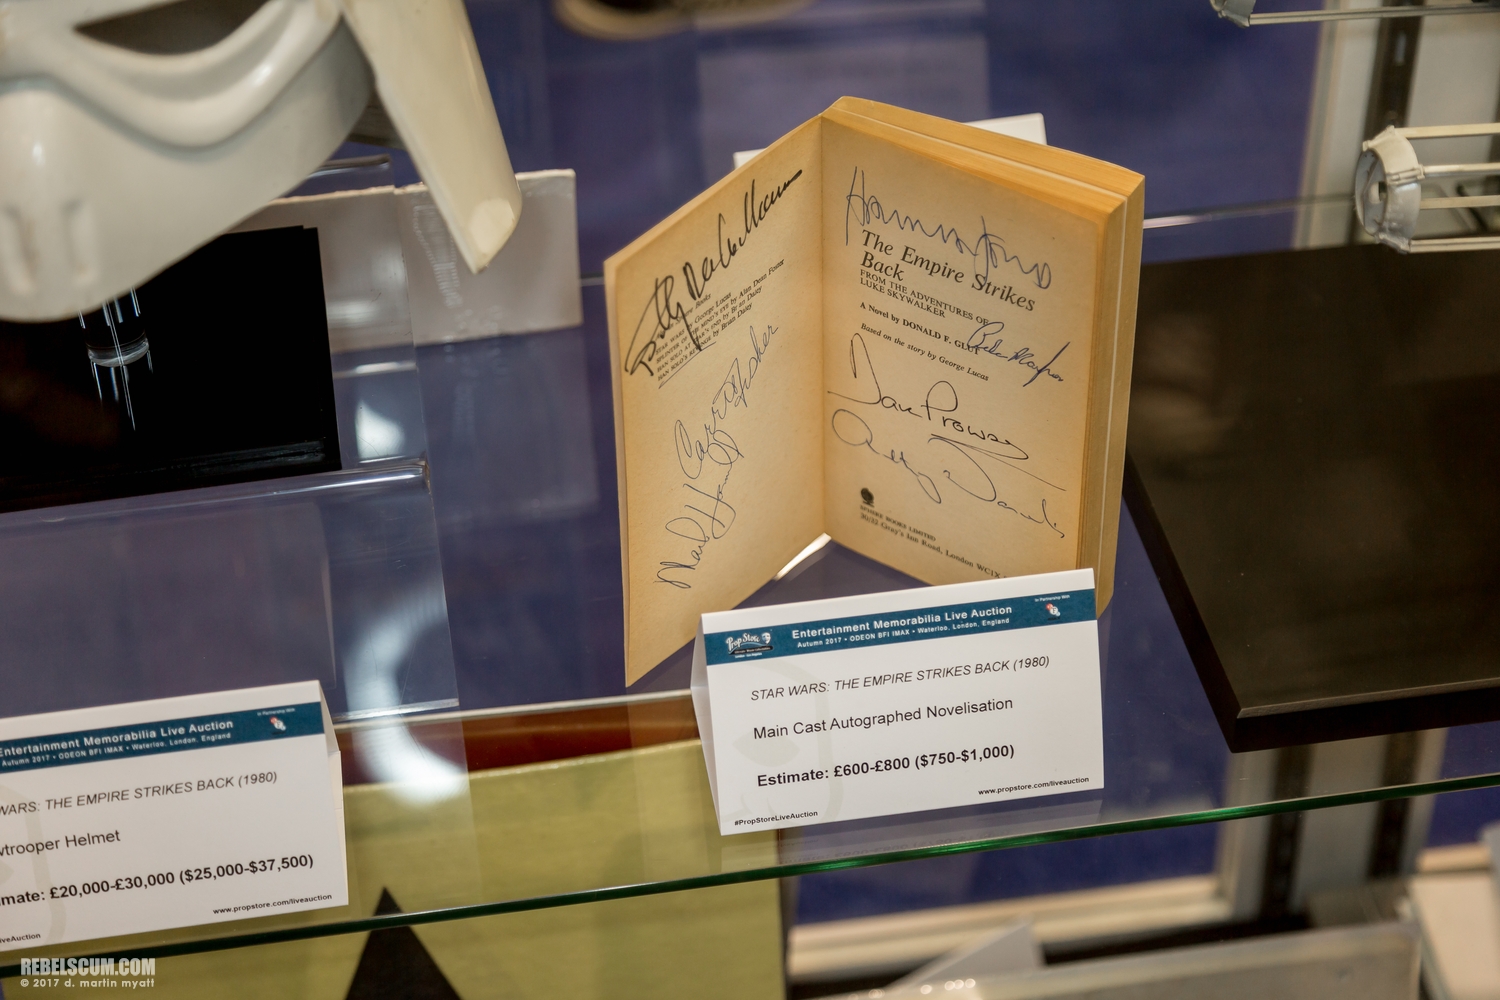 Billy Dee Williams
STAR WARS by George Lucas
SPLINTER OF THE MIND'S EYE by Alan Dean Foster
HAN SOLO AT STAR'S END by Brian Daley
HAN SOLO'S REVENGE by Brian Daley
Carrie Fisher
Mark Hamill
Harrison Ford
The Empire Strikes
Back
FROM THE ADVENTURES OF
LUKE SKYWALKER
A Novel by DONALD F. GLUT
Peter Mayhew
Based on the story by George Lucas
Dave Prowse
Anthony Daniels
SPHERE BOOKS LIMITED
30/32 Gray's Inn Road, London WC1X
Prop Store
Entertainment Memorabilia Live Auction
Autumn 2017 • ODEON BFI IMAX • Waterloo, London, England
In Partnership With
STAR WARS: THE EMPIRE STRIKES BACK (1980)
Main Cast Autographed Novelisation
Estimate: £600-£800 ($750-$1,000)
www.propstore.com/liveauction
#PropStoreLiveAuction
Entertainment Memorabilia Live Auction
Autumn 2017 • ODEON BFI IMAX • Waterloo, London, England
In Partnership With
WARS: THE EMPIRE STRIKES BACK (1980)
wtrooper Helmet
mate: £20,000-£30,000 ($25,000-$37,500)
www.propstore.com/liveauction
iveAuction
REBELSCUM.COM
© 2017 d. martin myatt